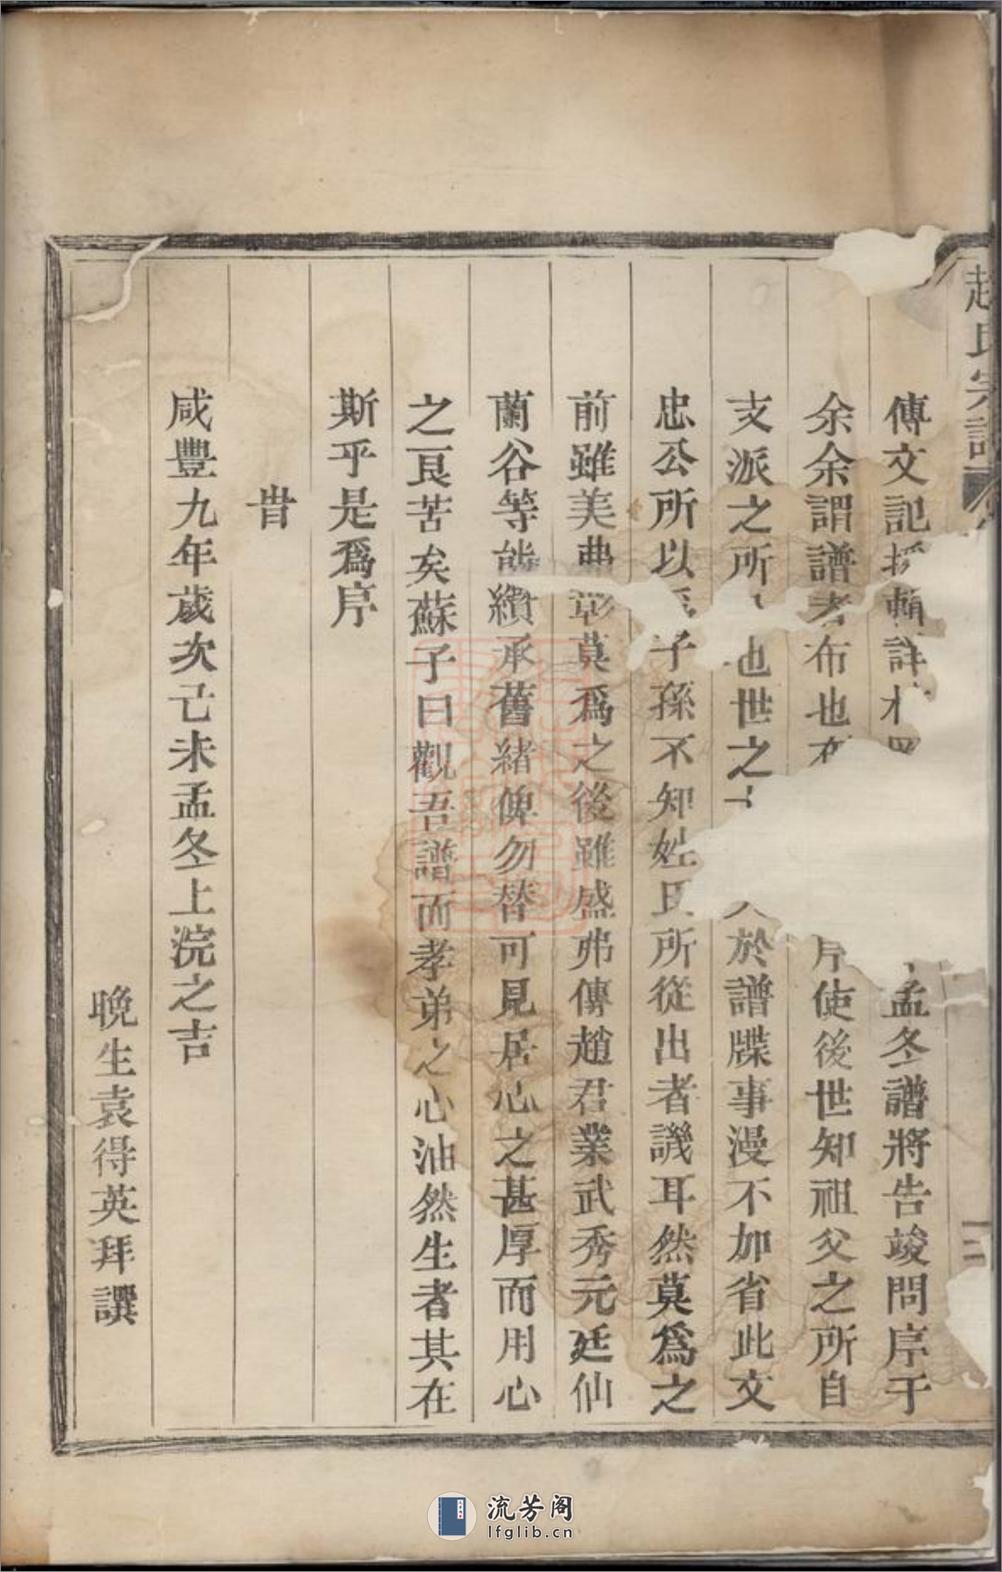 趙氏宗譜
傳文記
孟冬譜將告竣問序于
余余謂譜者布也
使後世知祖父之所自
支派之所
也世之
於譜牒事漫不加省此文
忠公所以
子孫不知姓氏所從出者譏耳然莫為之
前雖美弗彰莫為之後雖盛弗傳趙君業武秀元廷仙
蘭谷等能纘承舊緒俾勿替可見居心之甚厚而用心
之良苦矣蘇子曰觀吾譜而孝弟之心油然生者其在
斯乎是為序
旹
咸豐九年歲次己未孟冬上浣之吉
晚生袁得英拜譔
流芳阁
lfglib.cn